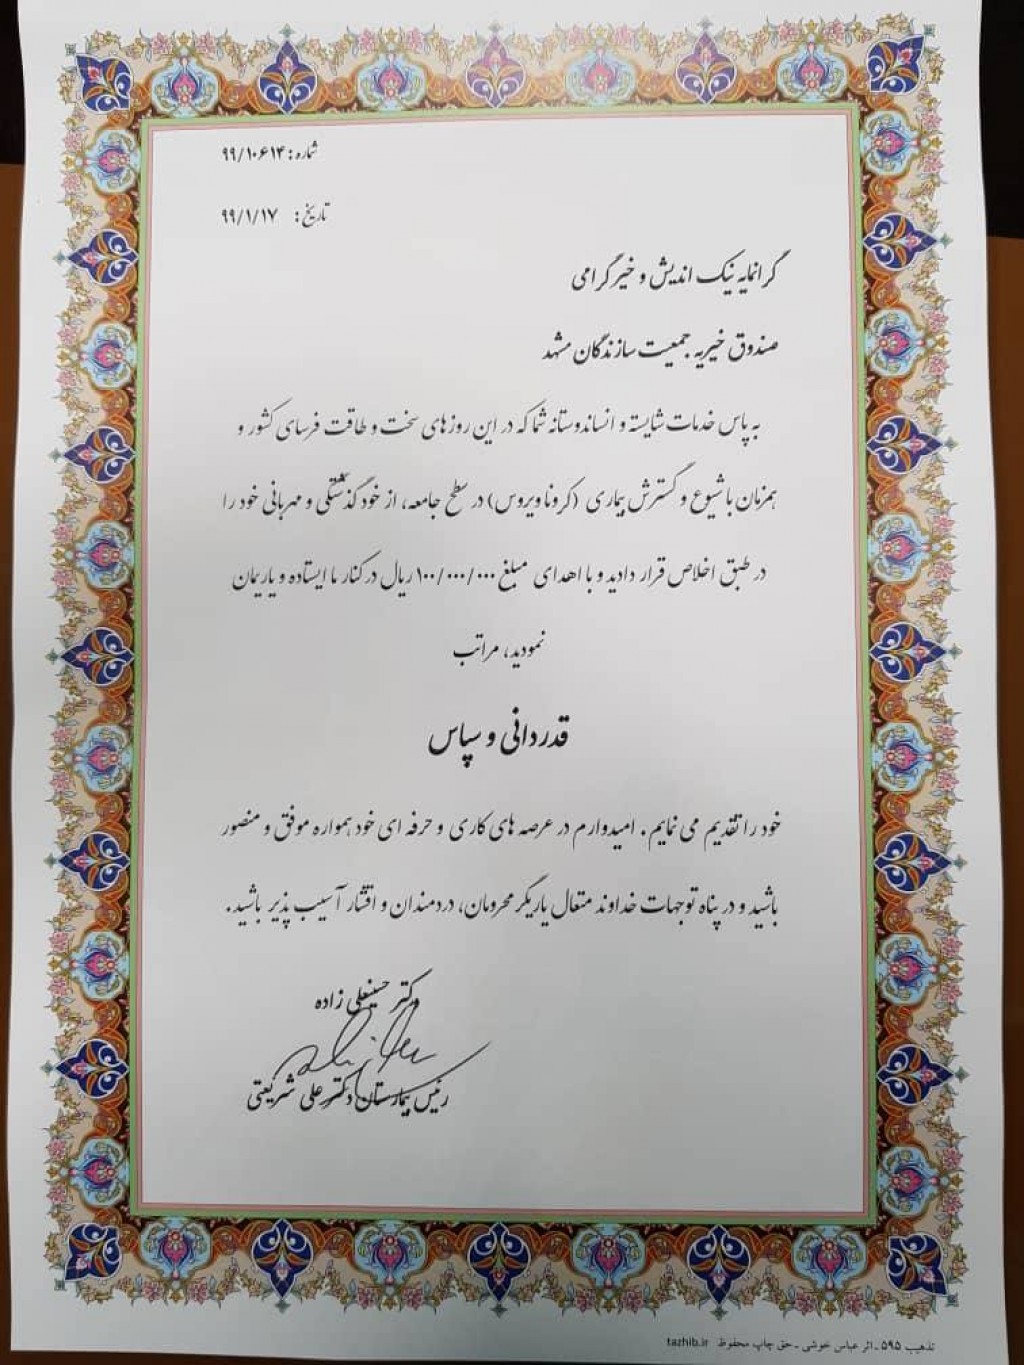 شماره: ۹۹/۱۰۶۱۴
تاریخ: ۹۹/۱/۱۷
گرانمایه نیک اندیش و خیر گرامی
صندوق خیریه جمعیت سازندگان مشهد
به پاس خدمات شایسته و انساندوستانه شما که در این روزهای سخت و طاقت فرسای کشور و
همزمان با شیوع و گسترش بیماری (کرونا ویروس) در سطح جامعه، از خود گذشتگی و مهربانی خود را
در طبق اخلاص قرار دادید و با اهدای مبلغ ۱۰۰/۰۰۰/۰۰۰ ریال در کنار ما ایستاده و یاریمان
نمودید، مراتب
قدردانی و سپاس
خود را تقدیم می نمایم. امیدوارم در عرصه های کاری و حرفه ای خود همواره موفق و منصور
باشید و در پناه توجهات خداوند متعال یاریگر محرومان، دردمندان و اقشار آسیب پذیر باشید.
دکتر حسینعلی زاده
رئیس بیمارستان دکتر علی شریعتی
تذهیب ۵۹۵ - اثر عباس خوشی - حق چاپ محفوظ tazhib.ir